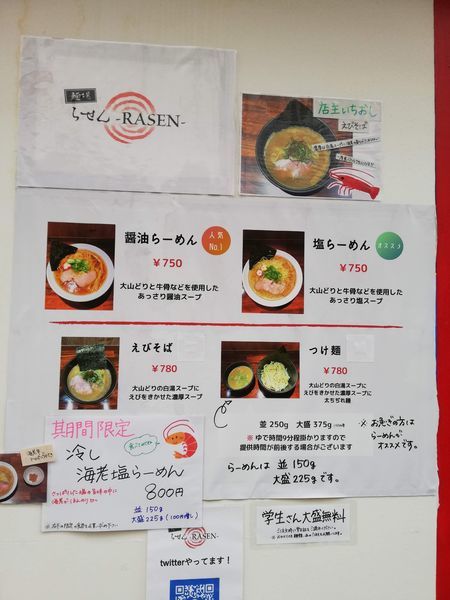 麺匠
らせん -RASEN-
店主いちおし
えびそば
醤油らーめん
人気
No.1
￥750
大山どりと牛骨などを使用した
あっさり醤油スープ
塩らーめん
オススメ
￥750
大山どりと牛骨などを使用した
あっさり塩スープ
えびそば
￥780
大山どりの白湯スープに
えびをきかせた濃厚スープ
つけ麺
￥780
大山どりの白湯スープに
えびをきかせた濃厚スープ
太ちぢれ麺
並 250g 大盛 375g
※ ゆで時間9分程掛かりますので
提供時間が前後する場合がございます
※ お急ぎの方は
らーめんが
オススメです。
らーめんは 並 150g
大盛 225gです。
期間限定
冷し
海老塩らーめん
800円
並 150g
大盛 225g (100円増し)
学生さん大盛無料
らせん -RASEN-
twitterやってます！